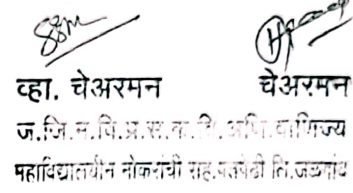 व्हा. चेअरमन चेअरमन
ज.जि.म.वि.प्र.स.क.नि.आणि.वाणिज्य
महाविद्यालयीन नोकरांची सह.पतपेढी लि.जळगांव